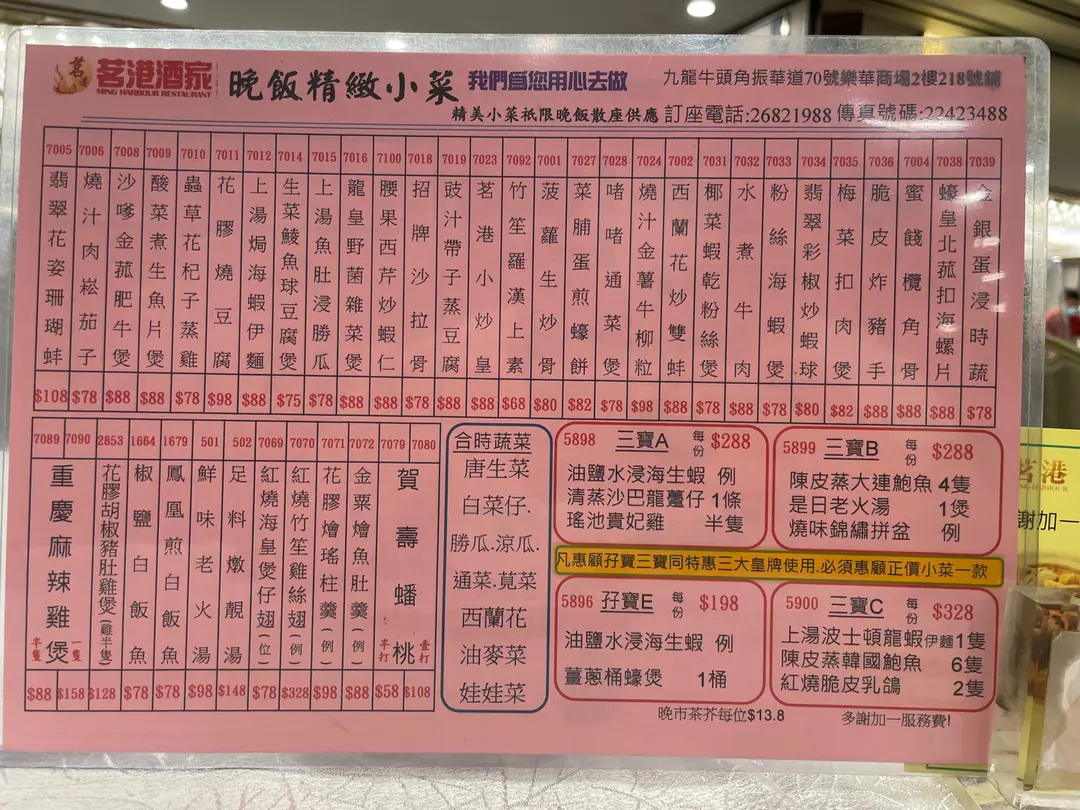 茗
茗港酒家
MING HARBOUR RESTAURANT
晚飯精緻小菜
我們為您用心去做
九龍牛頭角振華道70號樂華商場2樓218號鋪
精美小菜祇限晚飯散座供應 訂座電話:26821988 傳真號碼:22423488
7005 翡翠花姿珊瑚蚌 $108
7006 燒汁肉崧茄子 $78
7008 沙嗲金菰肥牛煲 $88
7009 酸菜煮生魚片煲 $88
7010 蟲草花杞子蒸雞 $78
7011 花膠燒豆腐 $98
7012 上湯焗海蝦伊麵 $88
7014 生菜鯪魚球豆腐煲 $75
7015 上湯魚肚浸勝瓜 $78
7016 龍皇野菌雜菜煲 $88
7100 腰果西芹炒蝦仁 $88
7018 招牌沙拉骨 $78
7019 豉汁帶子蒸豆腐 $88
7023 茗港小炒皇 $88
7092 竹笙羅漢上素 $68
7001 菠蘿生炒骨 $80
7027 菜脯蛋煎蠔餅 $82
7028 啫啫通菜煲 $78
7024 燒汁金薯牛柳粒 $98
7002 西蘭花炒雙蚌 $88
7031 椰菜蝦乾粉絲煲 $78
7032 水煮牛肉 $88
7033 粉絲海蝦煲 $78
7034 翡翠彩椒炒蝦球 $80
7035 梅菜扣肉煲 $82
7036 脆皮炸豬手 $88
7004 蜜餞欖角骨 $88
7038 蠔皇北菰扣海螺片 $88
7039 金銀蛋浸時蔬 $78
7089 7090 重慶麻辣雞煲 半隻 一隻 $88 $158
2853 花膠胡椒豬肚雞煲(雞半隻) $128
1664 椒鹽白飯魚 $78
1679 鳳凰煎白飯魚 $78
501 鮮味老火湯 $98
502 足料燉靚湯 $148
7069 紅燒海皇煲仔翅(位) $78
7070 紅燒竹笙雞絲翅(例) $328
7071 花膠燴瑤柱羹(例) $98
7072 金粟燴魚肚羹(例) $88
7079 7080 賀壽蟠桃 半打 壹打 $58 $108
合時蔬菜
唐生菜
白菜仔.
勝瓜.涼瓜.
通菜.莧菜
西蘭花
油麥菜
娃娃菜
5898 三寶A 每份 $288
油鹽水浸海生蝦 例
清蒸沙巴龍躉仔 1條
瑤池貴妃雞 半隻
5899 三寶B 每份 $288
陳皮蒸大連鮑魚 4隻
是日老火湯 1煲
燒味錦繡拼盆 例
凡惠顧孖寶三寶同特惠三大皇牌使用.必須惠顧正價小菜一款
5896 孖寶E 每份 $198
油鹽水浸海生蝦 例
薑蔥桶蠔煲 1桶
5900 三寶C 每份 $328
上湯波士頓龍蝦伊麵1隻
陳皮蒸韓國鮑魚 6隻
紅燒脆皮乳鴿 2隻
晚市茶芥每位$13.8
多謝加一服務費!
茗港
謝加一